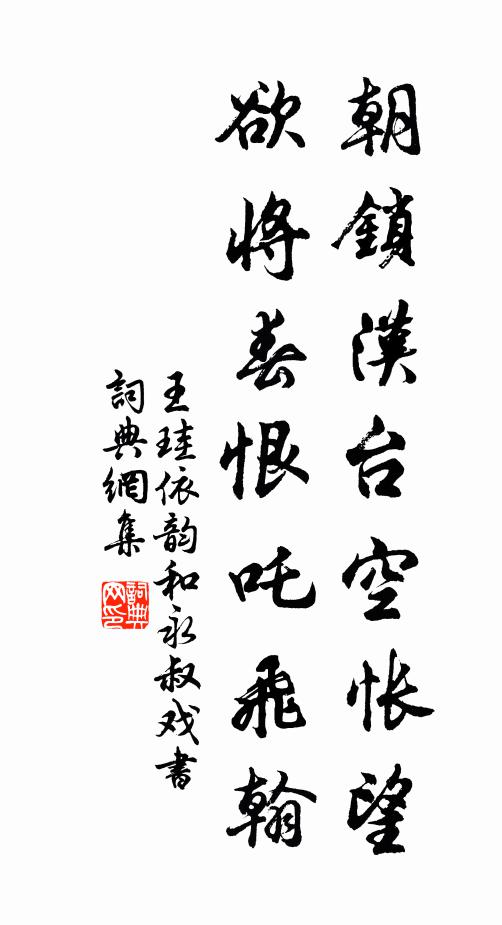 朝鎖漢台空怅望
欲將春恨吒飛翰
王珪依韵和永叔戏書
詞典網集
詞典网印